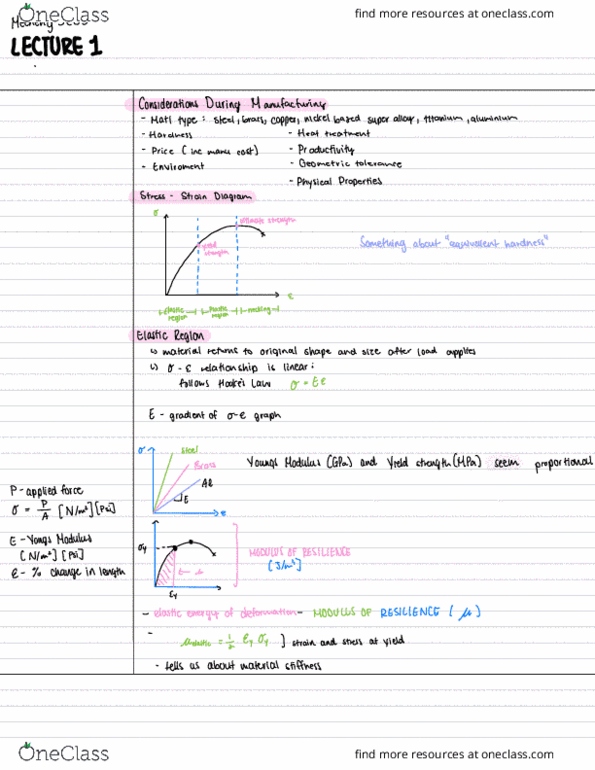 OneClass
find more resources at oneclass.com
LECTURE 1
Considerations During Manufacturing
- Matl type : steel, brass, copper, nickel based super alloy, titanium, aluminium
- Hardness - Heat treatment
- Price (inc manu cost) - Productivity
- Enviroment - Geometric tolerance
- Physical Properties
Stress - Strain Diagram
σ
ultimate strength
yield strength
Something about "equivalent hardness"
ε
elastic region plastic region necking
Elastic Region
↳ material returns to original shape and size after load applies
↳ σ - ε relationship is linear:
follows Hooke's Law σ = Eε
E - gradient of σ-e graph
σ
steel
Brass
Al
E
ε
Youngs Modulus (GPa) and Yield strength (MPa) seem proportional
P - applied force
σ = P/A [N/m²] [Psi]
E - Yongs Modulus
[N/m²] [Psi]
ε - % change in length
σy
εy
MODULUS OF RESILIENCE
[J/m³]
- elastic energy of deformation - MODULUS OF RESILIENCE ( μ )
-
μelastic = 1/2 εy σy ] strain and stress at yield
- tells us about material stiffness
OneClass
find more resources at oneclass.com